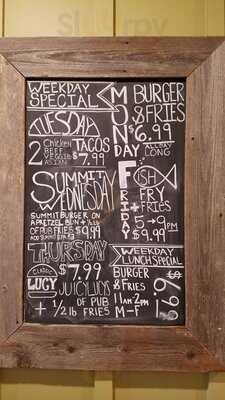 Sirved
WEEKDAY
SPECIAL
MONDAY
BURGER
& FRIES
$6.99
ALL DAY
LONG
TUESDAY
2 Chicken
BEEF
VEGGIE
ASIAN
TACOS
$7.99
SUMMIT
WEDNESDAY
SUMMIT BURGER ON
A PRETZEL BUN + 1/2 lb
OF PUB FRIES $9.99
FRIDAY
FISH
FRY
+
FRIES
5→9PM
$9.99
THURSDAY
CLASSIC
LUCY
$7.99
JUICY LUCYS
+ 1/2 lb OF PUB
FRIES
WEEKDAY
LUNCH SPECIAL
BURGER
& FRIES
11AM-2PM
M-F
$6.96